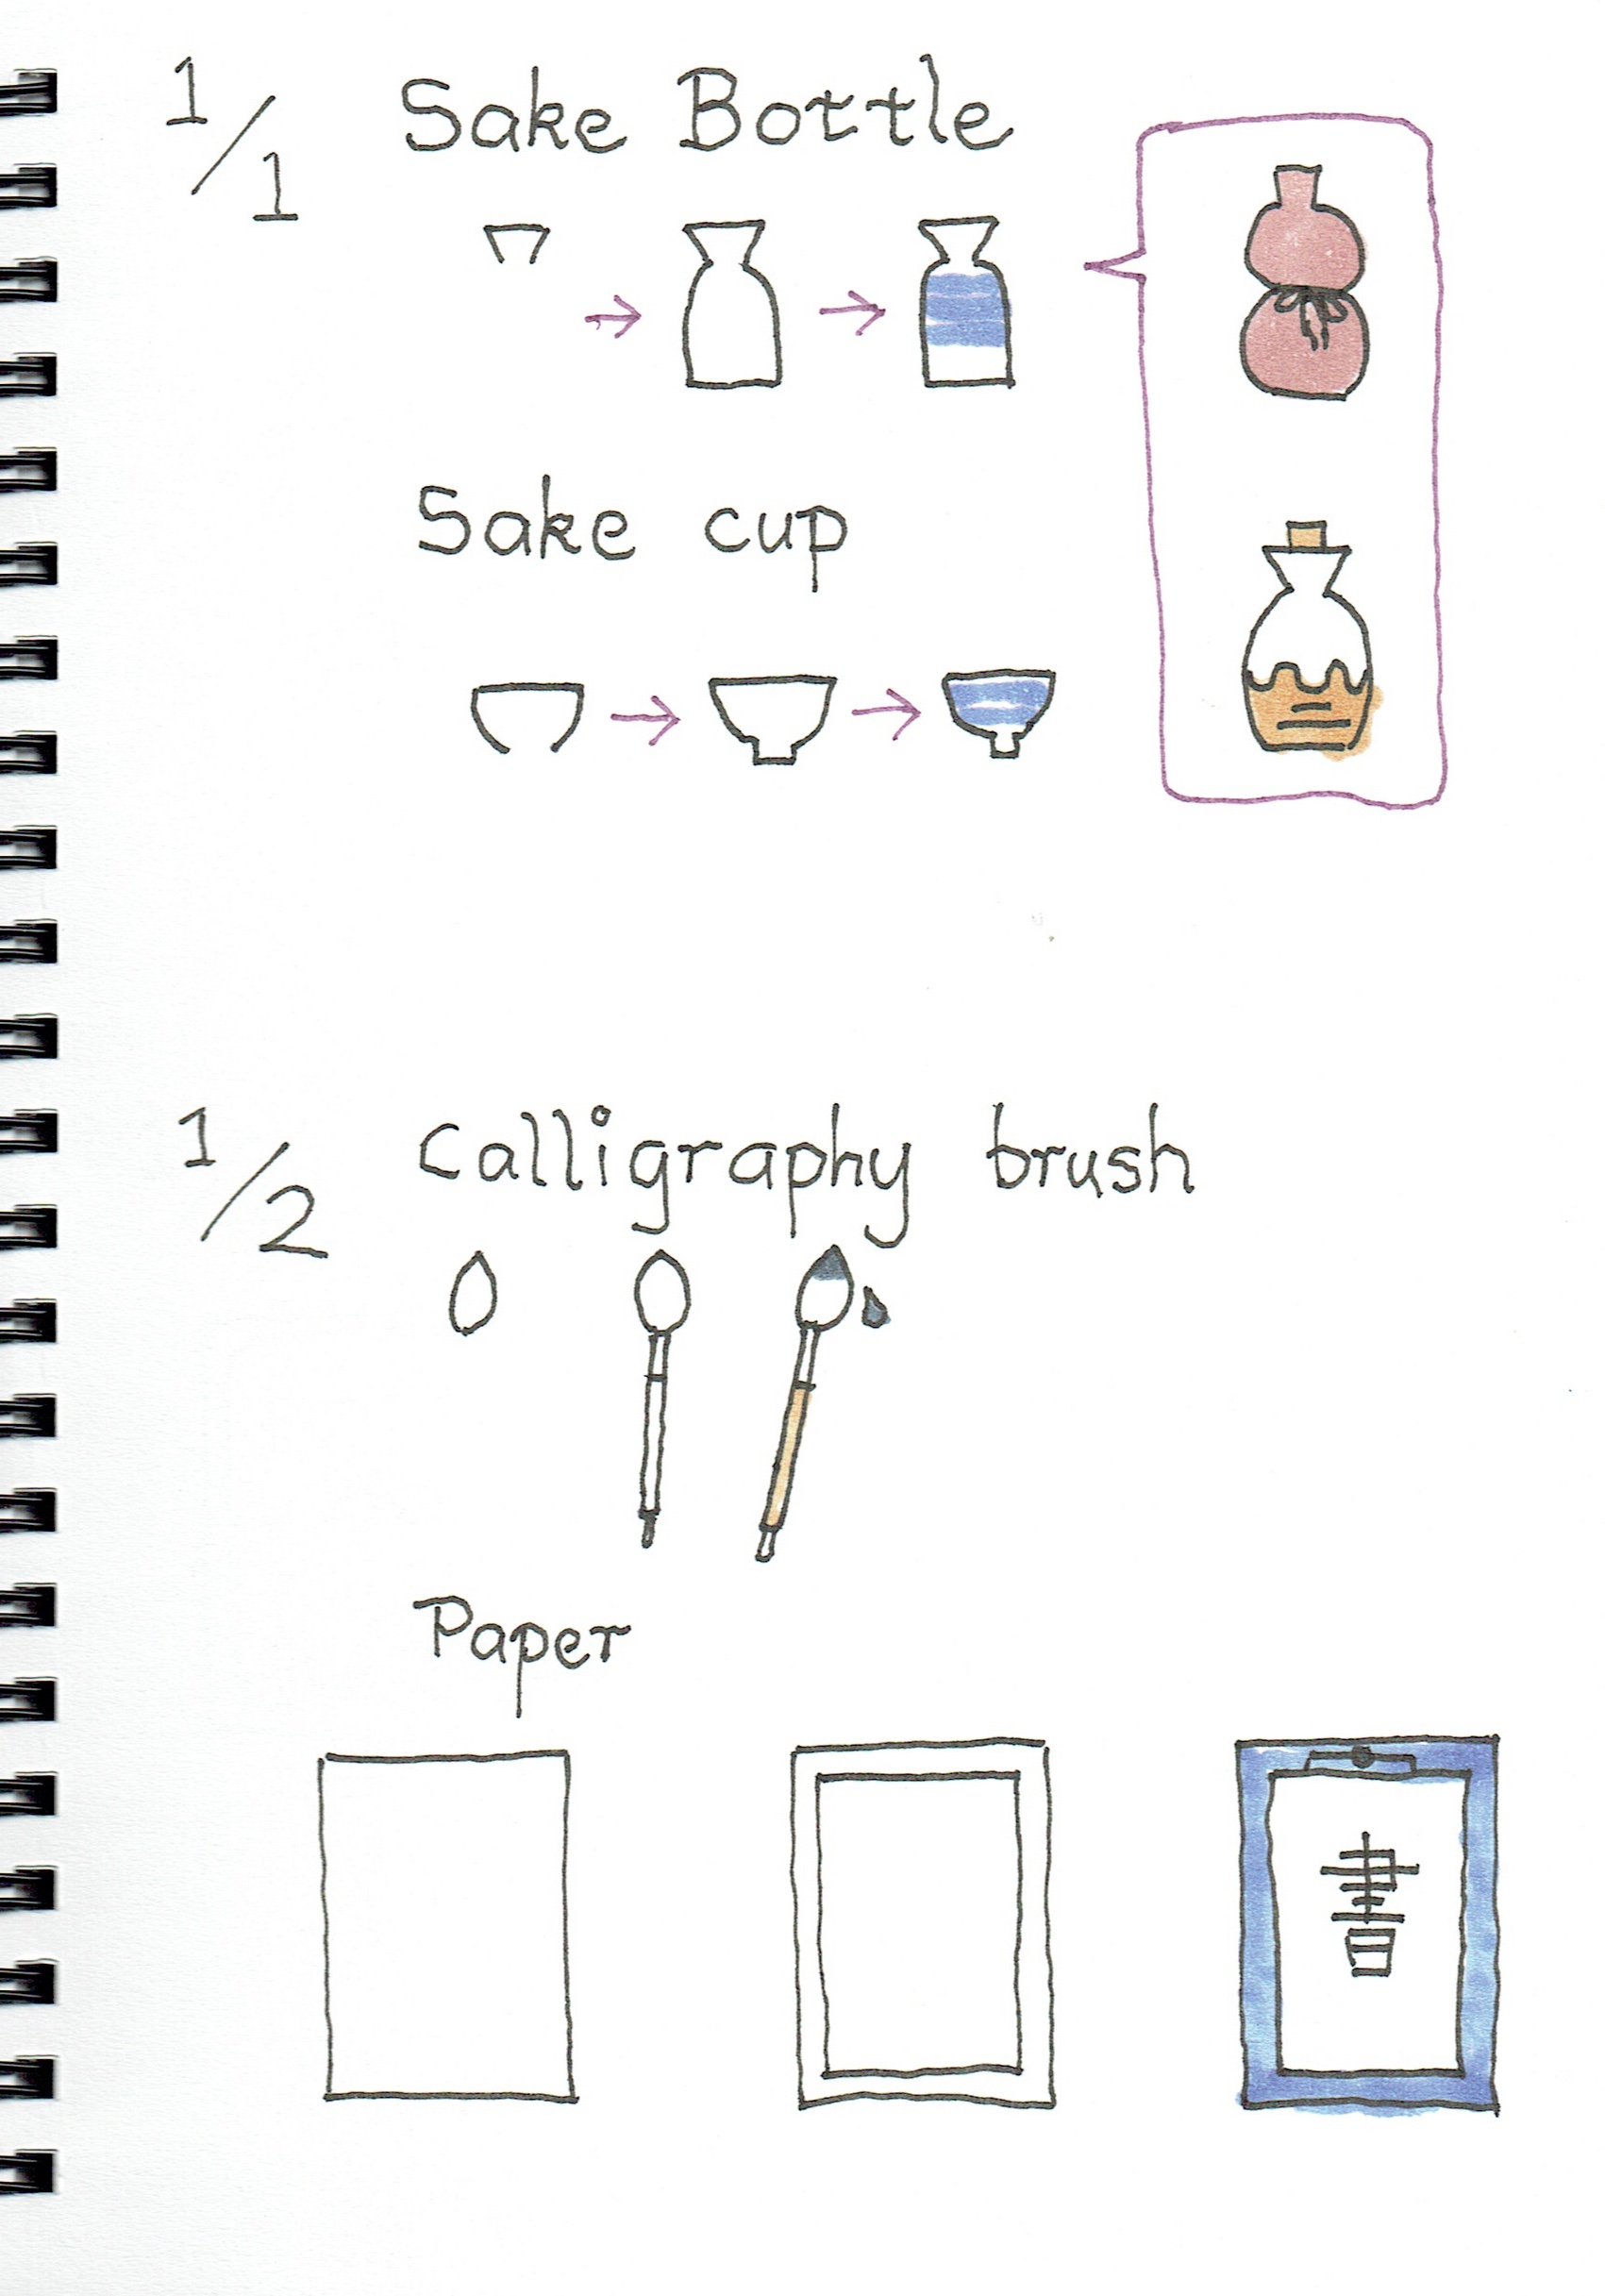 1/1
Sake Bottle
Sake cup
1/2
Calligraphy brush
Paper
書